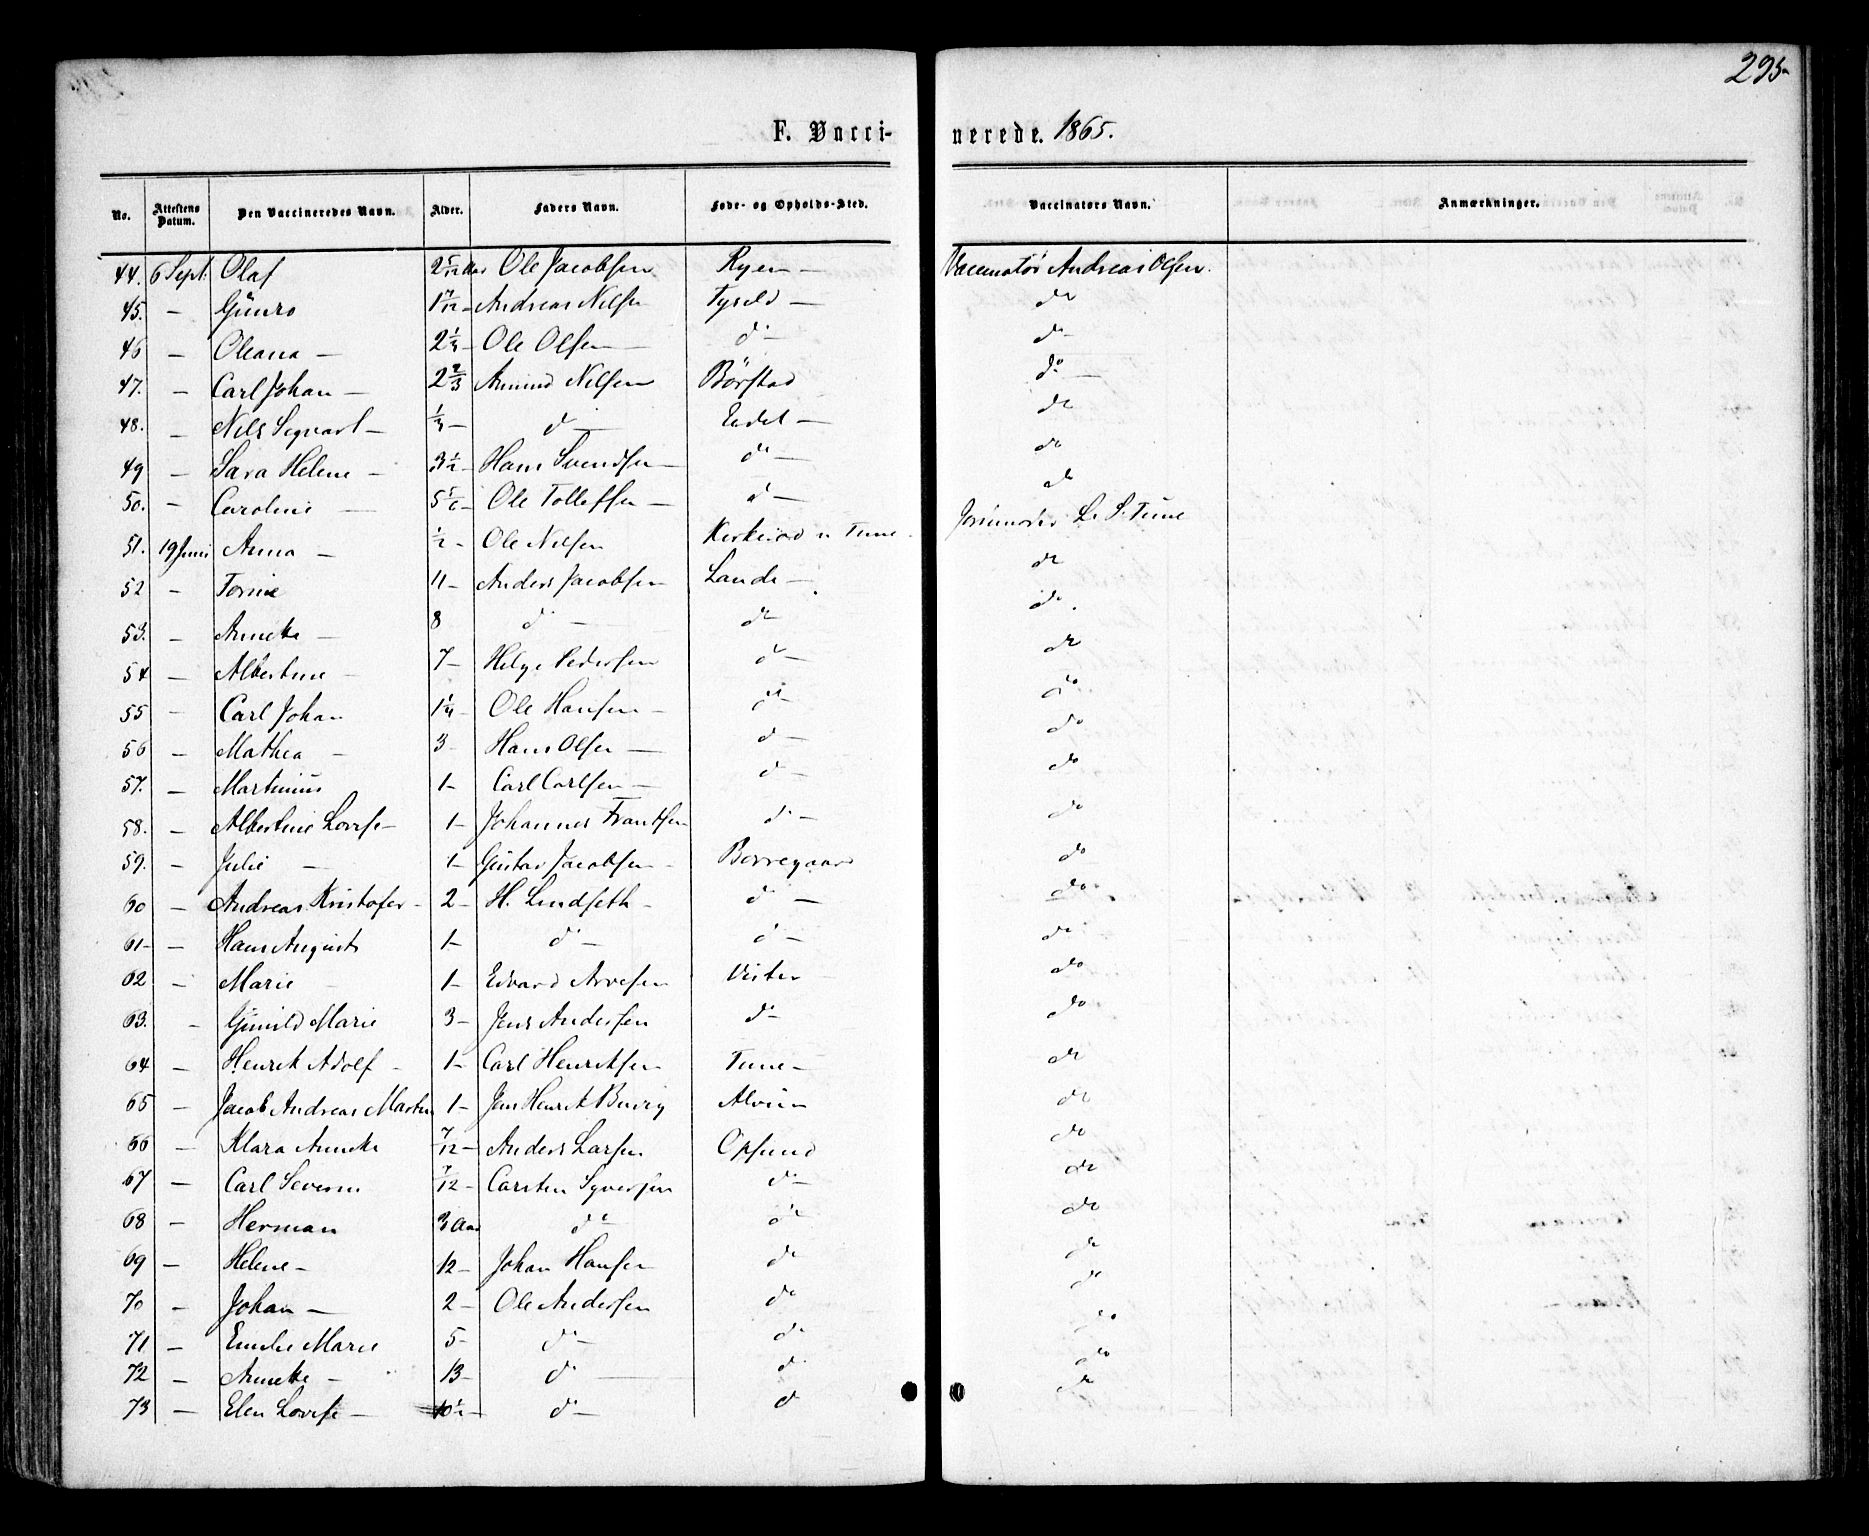 295
F. Vacci- nerede. 1865.
No. Attestens Datum. Den Vaccineredes Navn. Alder. Faders Navn. Føde- og Opholds-Sted. Vaccinators Navn. Anmærkninger.
44. 6 Sept. Olaf 2 5/12 Aar Ole Jacobsen Ryen — Vaccinatör Andreas Olsen.
45. — Günro Andreas Nilsen Tyseld — do
46 — Oleana — Ole Olsen — do do
47. — Carl Johan — 2 2/3 Amund Nilsen Börstad do —
48. — Nils Sigvart — do — Endet — do
49 — Sara Helene — 3 1/2 Hans Svendsen — do — do
50. — Caroline — 5 5/6 Ole Tollefsen — do — do
51. 19 Juni Anna — 1/2 - Ole Nilsen Tune. Jormoder L. S. Tune
52 — 11 - Anders Jacobsen Lande — do
53. — Annette — 8 do — do do
54 — Albertine — 7 — Helge Pedersen do — do
55 — Carl Johan 1 1/4 Ole Hansen — do do
56 — Mathea — 3 - Hans Olsen — do — do
57. — Martinius 1 - Carl Carlsen — do — do
58. — Albertine Lovise — 1 - Johannes Frantsen do — do
59. — Julie — 1 - Gustav Jacobsen — Borregaard do
60 — Andreas Kristofer - 2 - H. Lindseth - do — do
61 - — Hans August 1 - do — do — do
62 — Marie — 1 - Edvard Arvesen Vister do
63. — Gunild Marie 3 - Jens Andersen do do
64 — Henrik Adolf - 1 - Carl Henriksen Tune — do
65 — Jacob Andreas Martin 1 - Jens Henrik Alvim do
66 — Klara Annette 7/12 - Anders Larsen Opsund do
67 — Carl Severin 7/12 - Carsten Syversen do do
68 — Herman 3 Aar do do do
69 — Helene — 12 - Johan Hansen do do
70 — Johan — 2 - Ole Andersen do do
71 — Emilie Marie 5 - do — do do
72 — Annette — 13 - do — do do
73 — Elen Lovise — 10 1/2 - do — do do